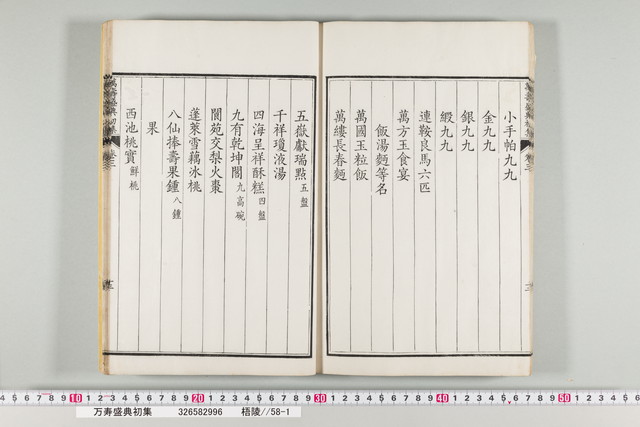 小手帕九九
金九九
銀九九
緞九九
連鞍良馬六匹
萬方玉食宴
飯湯麵等名
萬國玉粒飯
萬縷長春麵
五嶽獻瑞點五盤
千祥瓊液湯
四海呈祥酥糕四盤
九有乾坤閣九高碗
閬苑交梨火棗
蓬萊雪藕冰桃
八仙捧壽果鍾八鍾
果
西池桃實鮮桃
卷三
万寿盛典初集 326582996 梧陵//58-1